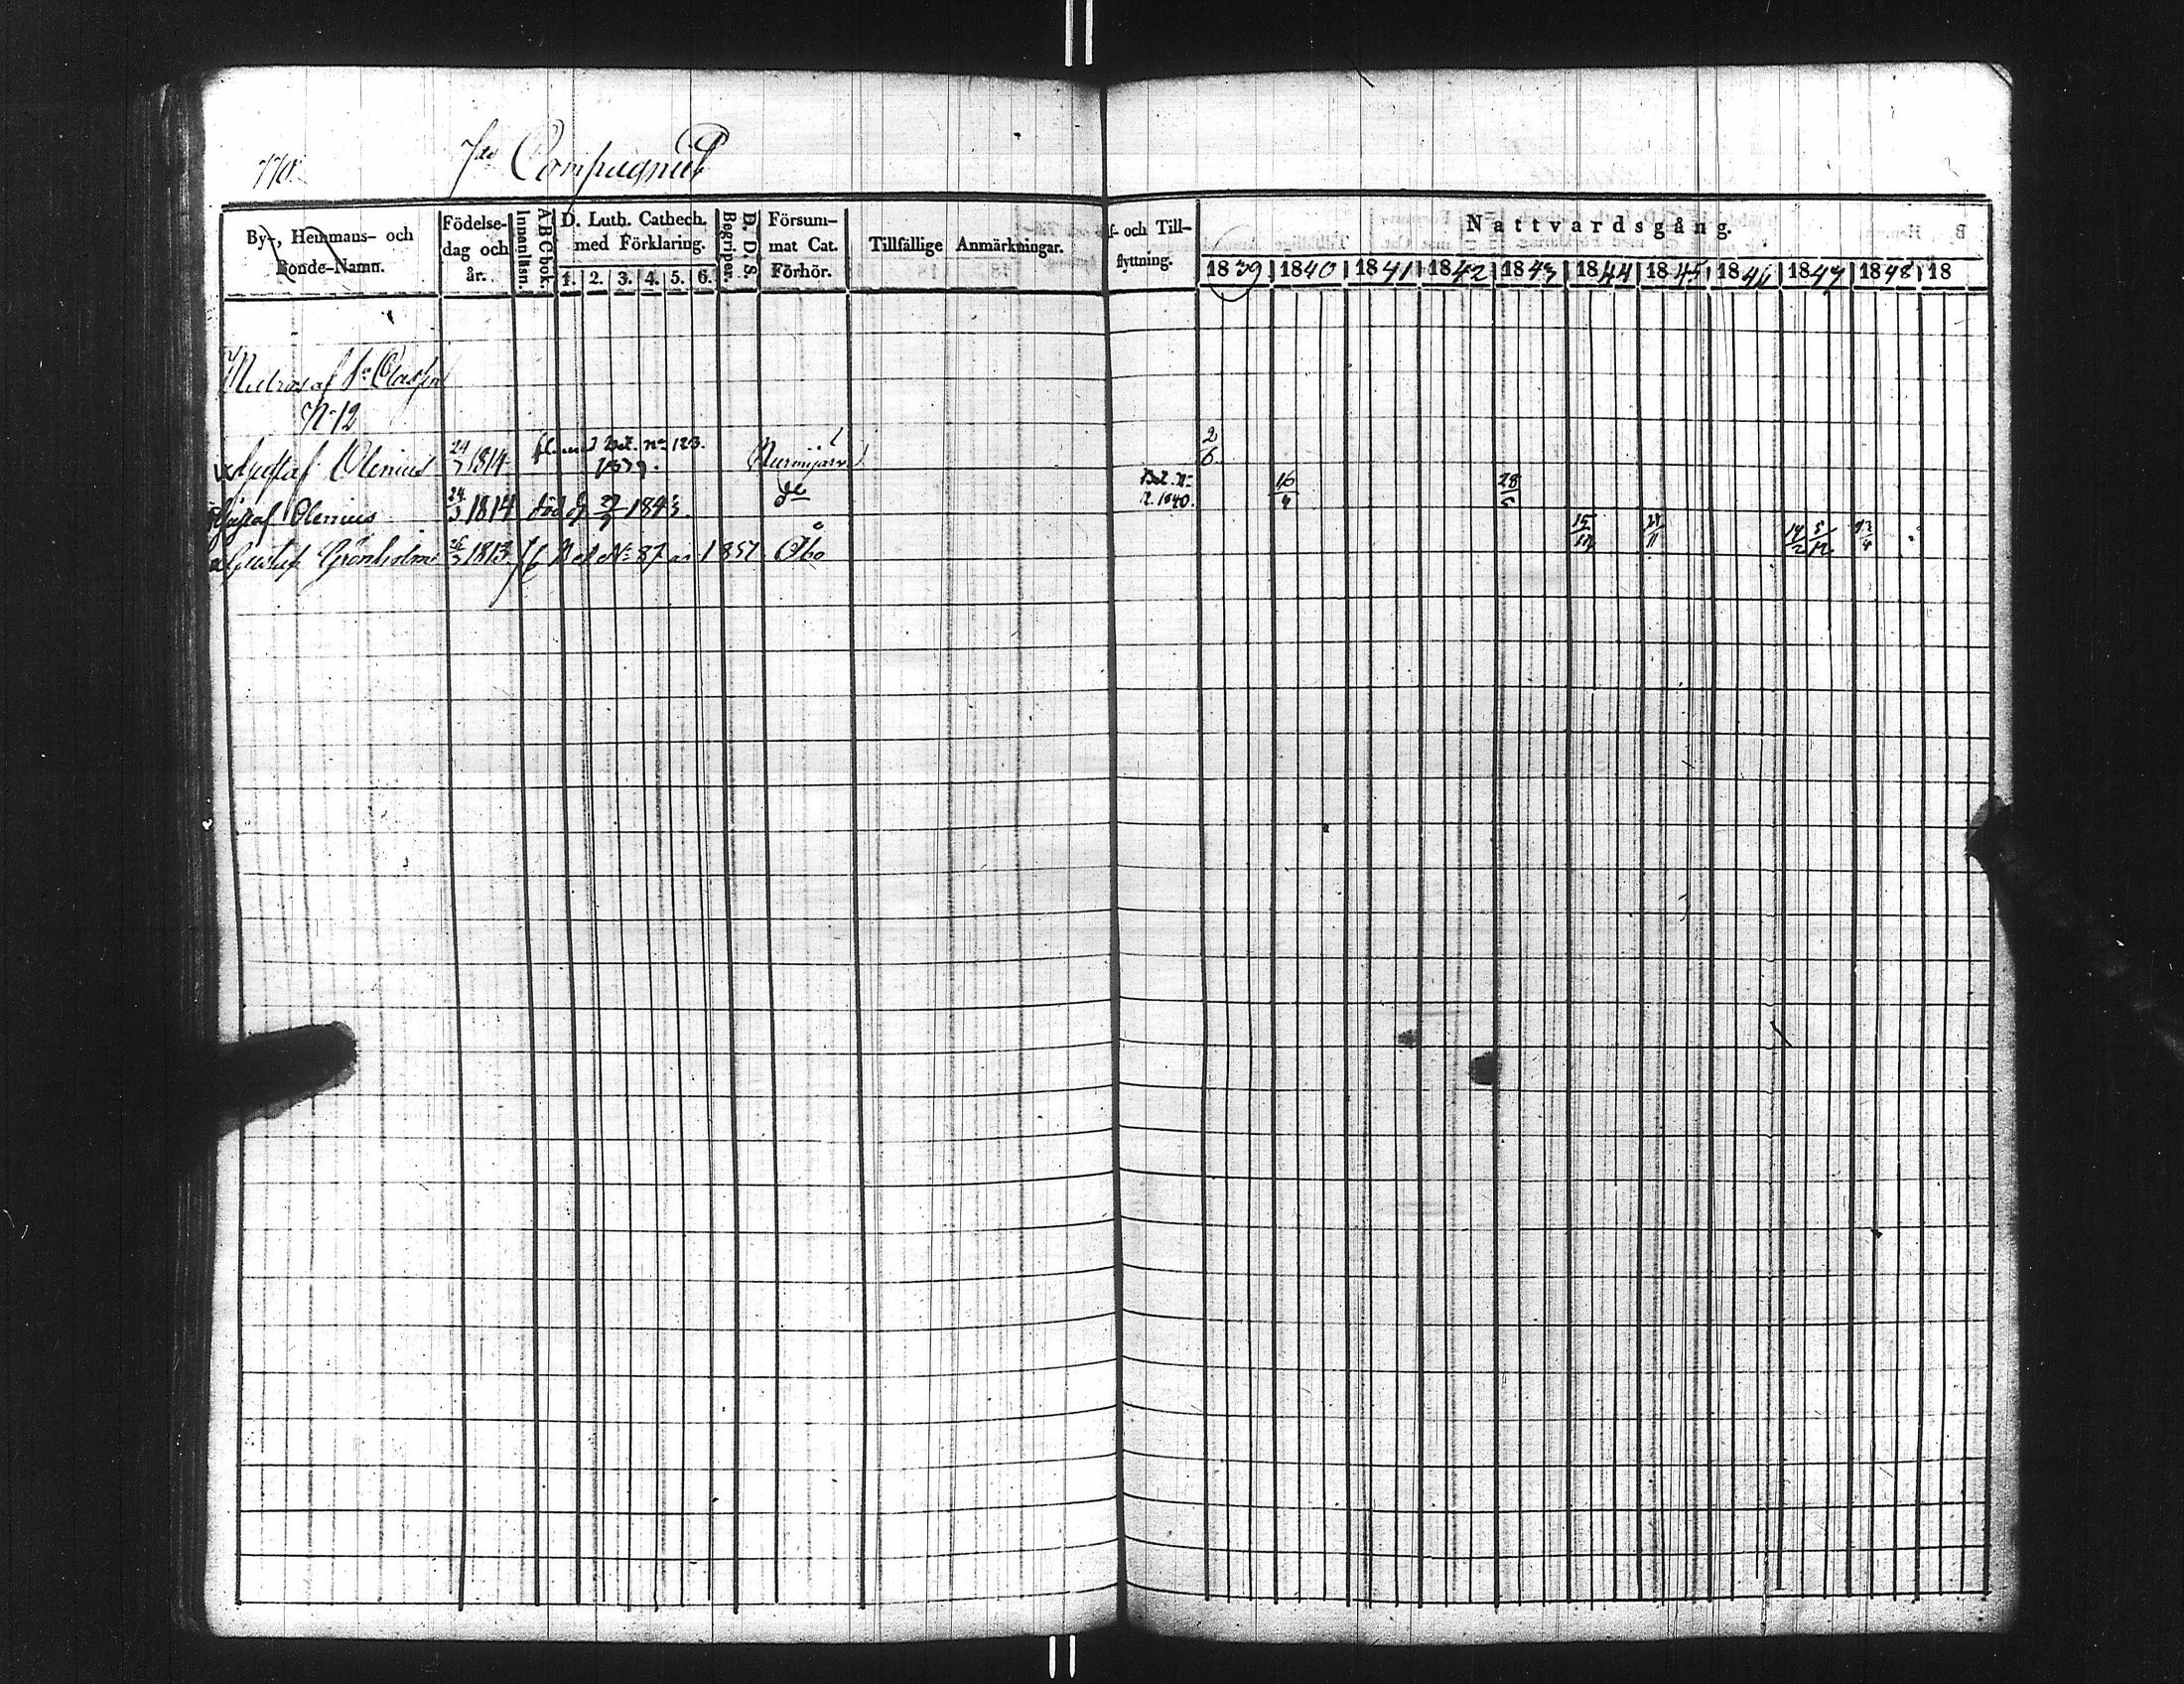 770.
7de Compagniet
By-, Hemmans- och Bonde-Namn.
Födelse- dag och år.
Innanläsn.
A B C bok.
D. Luth. Cathech. med Förklaring.
1. 2. 3. 4. 5. 6.
Begriper.
D. D. S.
Försum- mat Cat. Förhör.
Tillfällige Anmärkningar.
f- och Till- flyttning.
Nattvardsgång.
1839 1840 1841 1842 1843 1844 1845 1846 1847 1848 18
Matros af 1a Classen
N 12
Gustaf Olenius 24/3 1814 Bet. No 123. 1839. Nurmijärvi 2/6
Gustaf Olenius 24/3 1814 död d 1843 do Bet. No 2. 1840. 16/4 28/5
Gustaf Grönholm 26/3 1813 Bet No 87 1857 Åbo 14/2 5/12